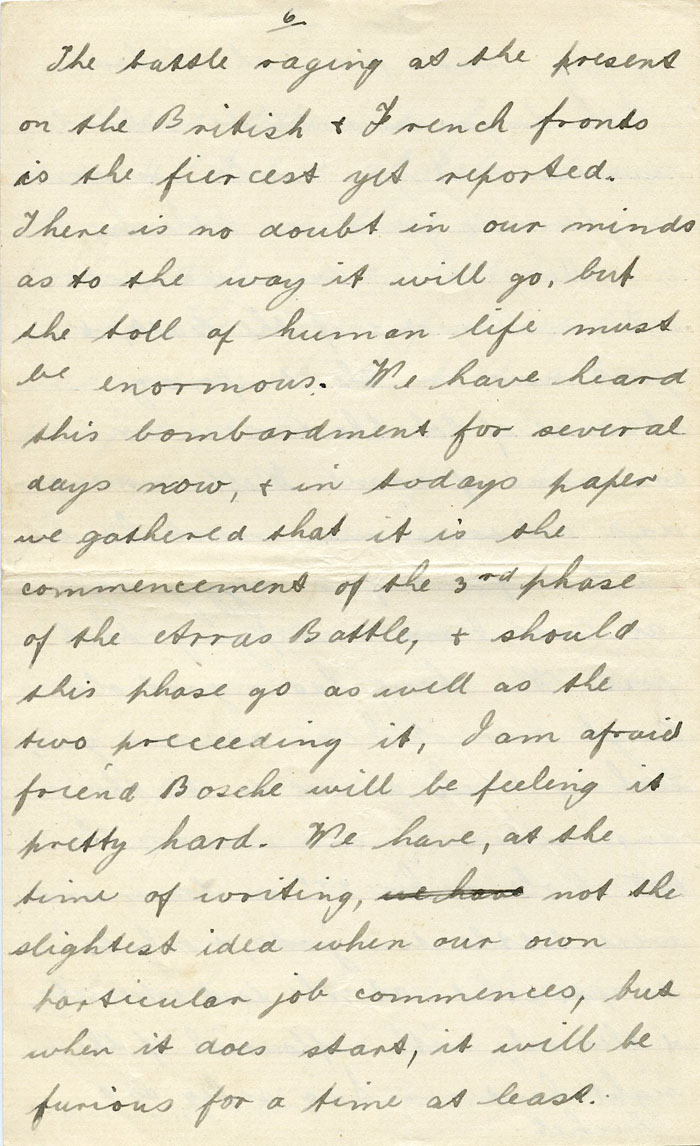 6
The battle raging at the present
on the British & French fronts
is the fiercest yet reported.
There is no doubt in our minds
as to the way it will go, but
the toll of human life must
be enormous. We have heard
this bombardment for several
days now, & in todays paper
we gathered that it is the
commencement of the 3rd phase
of the Arras Battle, & should
this phase go as well as the
two preceeding it, I am afraid
friend Bosche will be feeling it
pretty hard. We have, at the
time of writing, we have not the
slightest idea when our own
particular job commences, but
when it does start, it will be
furious for a time at least.